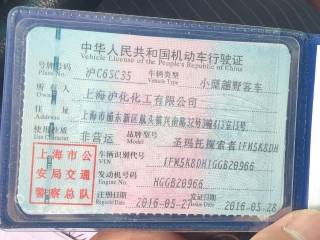 中华人民共和国机动车行驶证
Vehicle License of the People's Republic of China
号牌号码 沪C6SC35 车辆类型 小型越野客车
Plate No. Vehicle Type
所有人 上海沪化化工有限公司
Owner
住址 上海市浦东新区航头镇
Address
使用性质 非营运 品牌型号
Use Character Model
上海市公安局交通警察总队
车辆识别代号
VIN
发动机号码 HGGB20966
Engine No.
注册日期 2016-05-27 发证日期 2016-05-28
Register Date Issue Date